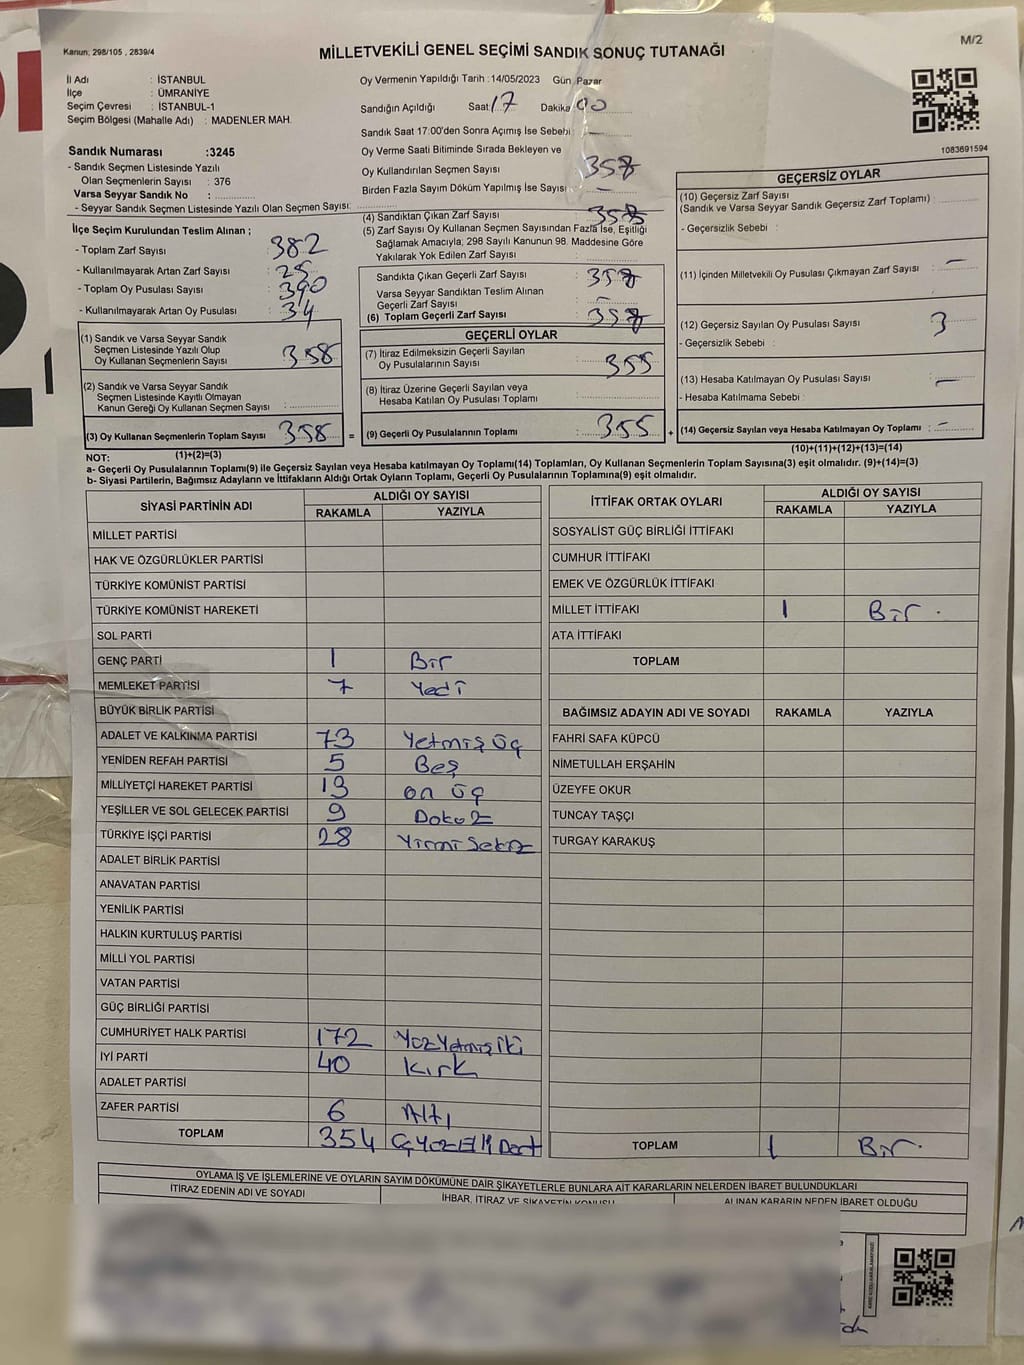 Kanun; 298/105 , 2839/4
MİLLETVEKİLİ GENEL SEÇİMİ SANDIK SONUÇ TUTANAĞI
M/2
İl Adı : İSTANBUL
İlçe : ÜMRANİYE
Seçim Çevresi : İSTANBUL-1
Seçim Bölgesi (Mahalle Adı) : MADENLER MAH.
Sandık Numarası :3245
- Sandık Seçmen Listesinde Yazılı
Olan Seçmenlerin Sayısı : 376
Varsa Seyyar Sandık No :
- Seyyar Sandık Seçmen Listesinde Yazılı Olan Seçmen Sayısı:
İlçe Seçim Kurulundan Teslim Alınan ;
- Toplam Zarf Sayısı : 382
- Kullanılmayarak Artan Zarf Sayısı : 25
- Toplam Oy Pusulası Sayısı : 390
- Kullanılmayarak Artan Oy Pusulası : 34
(1) Sandık ve Varsa Seyyar Sandık
Seçmen Listesinde Yazılı Olup
Oy Kullanan Seçmenlerin Sayısı : 358
(2) Sandık ve Varsa Seyyar Sandık
Seçmen Listesinde Kayıtlı Olmayan
Kanun Gereği Oy Kullanan Seçmen Sayısı :
(3) Oy Kullanan Seçmenlerin Toplam Sayısı : 358 =
(1)+(2)=(3)
Oy Vermenin Yapıldığı Tarih :14/05/2023 Gün :Pazar
Sandığın Açıldığı Saat: 17 Dakika: 00
Sandık Saat 17:00'den Sonra Açımış İse Sebebi : —
Oy Verme Saati Bitiminde Sırada Bekleyen ve
Oy Kullandırılan Seçmen Sayısı : 358
Birden Fazla Sayım Döküm Yapılmış İse Sayısı : —
(4) Sandıktan Çıkan Zarf Sayısı : 358
(5) Zarf Sayısı Oy Kullanan Seçmen Sayısından Fazla İse, Eşitliği
Sağlamak Amacıyla; 298 Sayılı Kanunun 98. Maddesine Göre
Yakılarak Yok Edilen Zarf Sayısı :
Sandıkta Çıkan Geçerli Zarf Sayısı : 358
Varsa Seyyar Sandıktan Teslim Alınan
Geçerli Zarf Sayısı : —
(6) Toplam Geçerli Zarf Sayısı : 358
GEÇERLİ OYLAR
(7) İtiraz Edilmeksizin Geçerli Sayılan
Oy Pusulalarının Sayısı : 355
(8) İtiraz Üzerine Geçerli Sayılan veya
Hesaba Katılan Oy Pusulası Toplamı :
(9) Geçerli Oy Pusulalarının Toplamı : 355 +
1083691594
GEÇERSİZ OYLAR
(10) Geçersiz Zarf Sayısı
(Sandık ve Varsa Seyyar Sandık Geçersiz Zarf Toplamı) :
- Geçersizlik Sebebi :
(11) İçinden Milletvekili Oy Pusulası Çıkmayan Zarf Sayısı : —
(12) Geçersiz Sayılan Oy Pusulası Sayısı : 3
- Geçersizlik Sebebi :
(13) Hesaba Katılmayan Oy Pusulası Sayısı : —
- Hesaba Katılmama Sebebi :
(14) Geçersiz Sayılan veya Hesaba Katılmayan Oy Toplamı : —
(10)+(11)+(12)+(13)=(14)
NOT:
a- Geçerli Oy Pusulalarının Toplamı(9) ile Geçersiz Sayılan veya Hesaba katılmayan Oy Toplamı(14) Toplamları, Oy Kullanan Seçmenlerin Toplam Sayısına(3) eşit olmalıdır. (9)+(14)=(3)
b- Siyasi Partilerin, Bağımsız Adayların ve İttifakların Aldığı Ortak Oyların Toplamı, Geçerli Oy Pusulalarının Toplamına(9) eşit olmalıdır.
SİYASİ PARTİNİN ADI ALDIĞI OY SAYISI
RAKAMLA YAZIYLA
MİLLET PARTİSİ
HAK VE ÖZGÜRLÜKLER PARTİSİ
TÜRKİYE KOMÜNİST PARTİSİ
TÜRKİYE KOMÜNİST HAREKETİ
SOL PARTİ
GENÇ PARTİ 1 Bir
MEMLEKET PARTİSİ 7 Yedi
BÜYÜK BİRLİK PARTİSİ
ADALET VE KALKINMA PARTİSİ 73 Yetmiş Üç
YENİDEN REFAH PARTİSİ 5 Beş
MİLLİYETÇİ HAREKET PARTİSİ 13 on üç
YEŞİLLER VE SOL GELECEK PARTİSİ 9 Dokuz
TÜRKİYE İŞÇİ PARTİSİ 28 Yirmi Sekiz
ADALET BİRLİK PARTİSİ
ANAVATAN PARTİSİ
YENİLİK PARTİSİ
HALKIN KURTULUŞ PARTİSİ
MİLLİ YOL PARTİSİ
VATAN PARTİSİ
GÜÇ BİRLİĞİ PARTİSİ
CUMHURİYET HALK PARTİSİ 172 Yüz Yetmiş İki
İYİ PARTİ 40 Kırk
ADALET PARTİSİ
ZAFER PARTİSİ 6 Altı
TOPLAM 354 Üç Yüz Elli Dört
İTTİFAK ORTAK OYLARI ALDIĞI OY SAYISI
RAKAMLA YAZIYLA
SOSYALİST GÜÇ BİRLİĞİ İTTİFAKI
CUMHUR İTTİFAKI
EMEK VE ÖZGÜRLÜK İTTİFAKI
MİLLET İTTİFAKI 1 Bir.
ATA İTTİFAKI
TOPLAM
BAĞIMSIZ ADAYIN ADI VE SOYADI RAKAMLA YAZIYLA
FAHRİ SAFA KÜPCÜ
NİMETULLAH ERŞAHİN
ÜZEYFE OKUR
TUNCAY TAŞÇI
TURGAY KARAKUŞ
TOPLAM 1 Bir.
OYLAMA İŞ VE İŞLEMLERİNE VE OYLARIN SAYIM DÖKÜMÜNE DAİR ŞİKAYETLERLE BUNLARA AİT KARARLARIN NELERDEN İBARET BULUNDUKLARI
İTİRAZ EDENİN ADI VE SOYADI İHBAR, İTİRAZ VE ŞİKAYETİN KONUSU ALINAN KARARIN NEDEN İBARET OLDUĞU